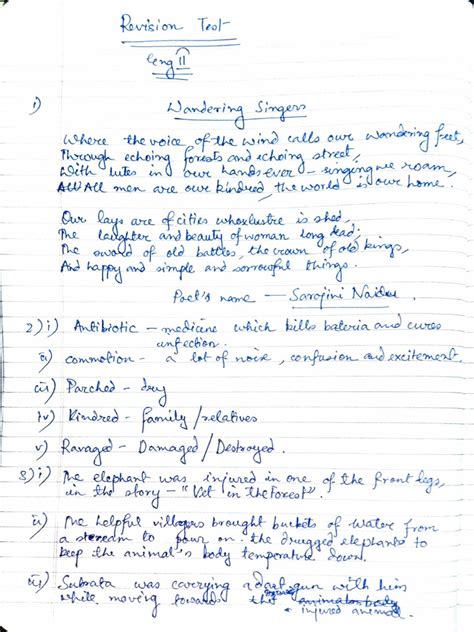 Revision Test
Eng II
1)
Wandering Singers
Where the voice of the wind calls our wandering feet,
Through echoing forests and echoing street,
With lutes in our hands ever - singing we roam,
All men are our kindred, the world is our home.
Our lays are of cities whose lustre is shed,
The laughter and beauty of woman long dead;
The sword of old battles, the crown of old kings,
And happy and simple and sorrowful things.
Poet's name — Sarojini Naidu
2) i) Antibiotic - medicine which kills bateria and cures
infection.
ii) commotion - a lot of noise, confusion and excitement.
iii) Parched - dry
iv) Kindred - family/relatives
v) Ravaged - Damaged/Destroyed.
3) i) The elephant was injured in one of the front legs,
in the story - "Vet in the Forest".
ii) The helpful villagers brought buckets of water from
a stream to pour on the drugged elephants to
keep the animal's body temperature down.
iii) Subrata was carrying a dart gun with him
while moving towards the
injured animal.